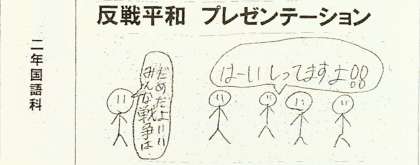 反戦平和 プレゼンテーション
二年国語科
みんな戦争は
だめだよ!!
はーいしってますよ!!